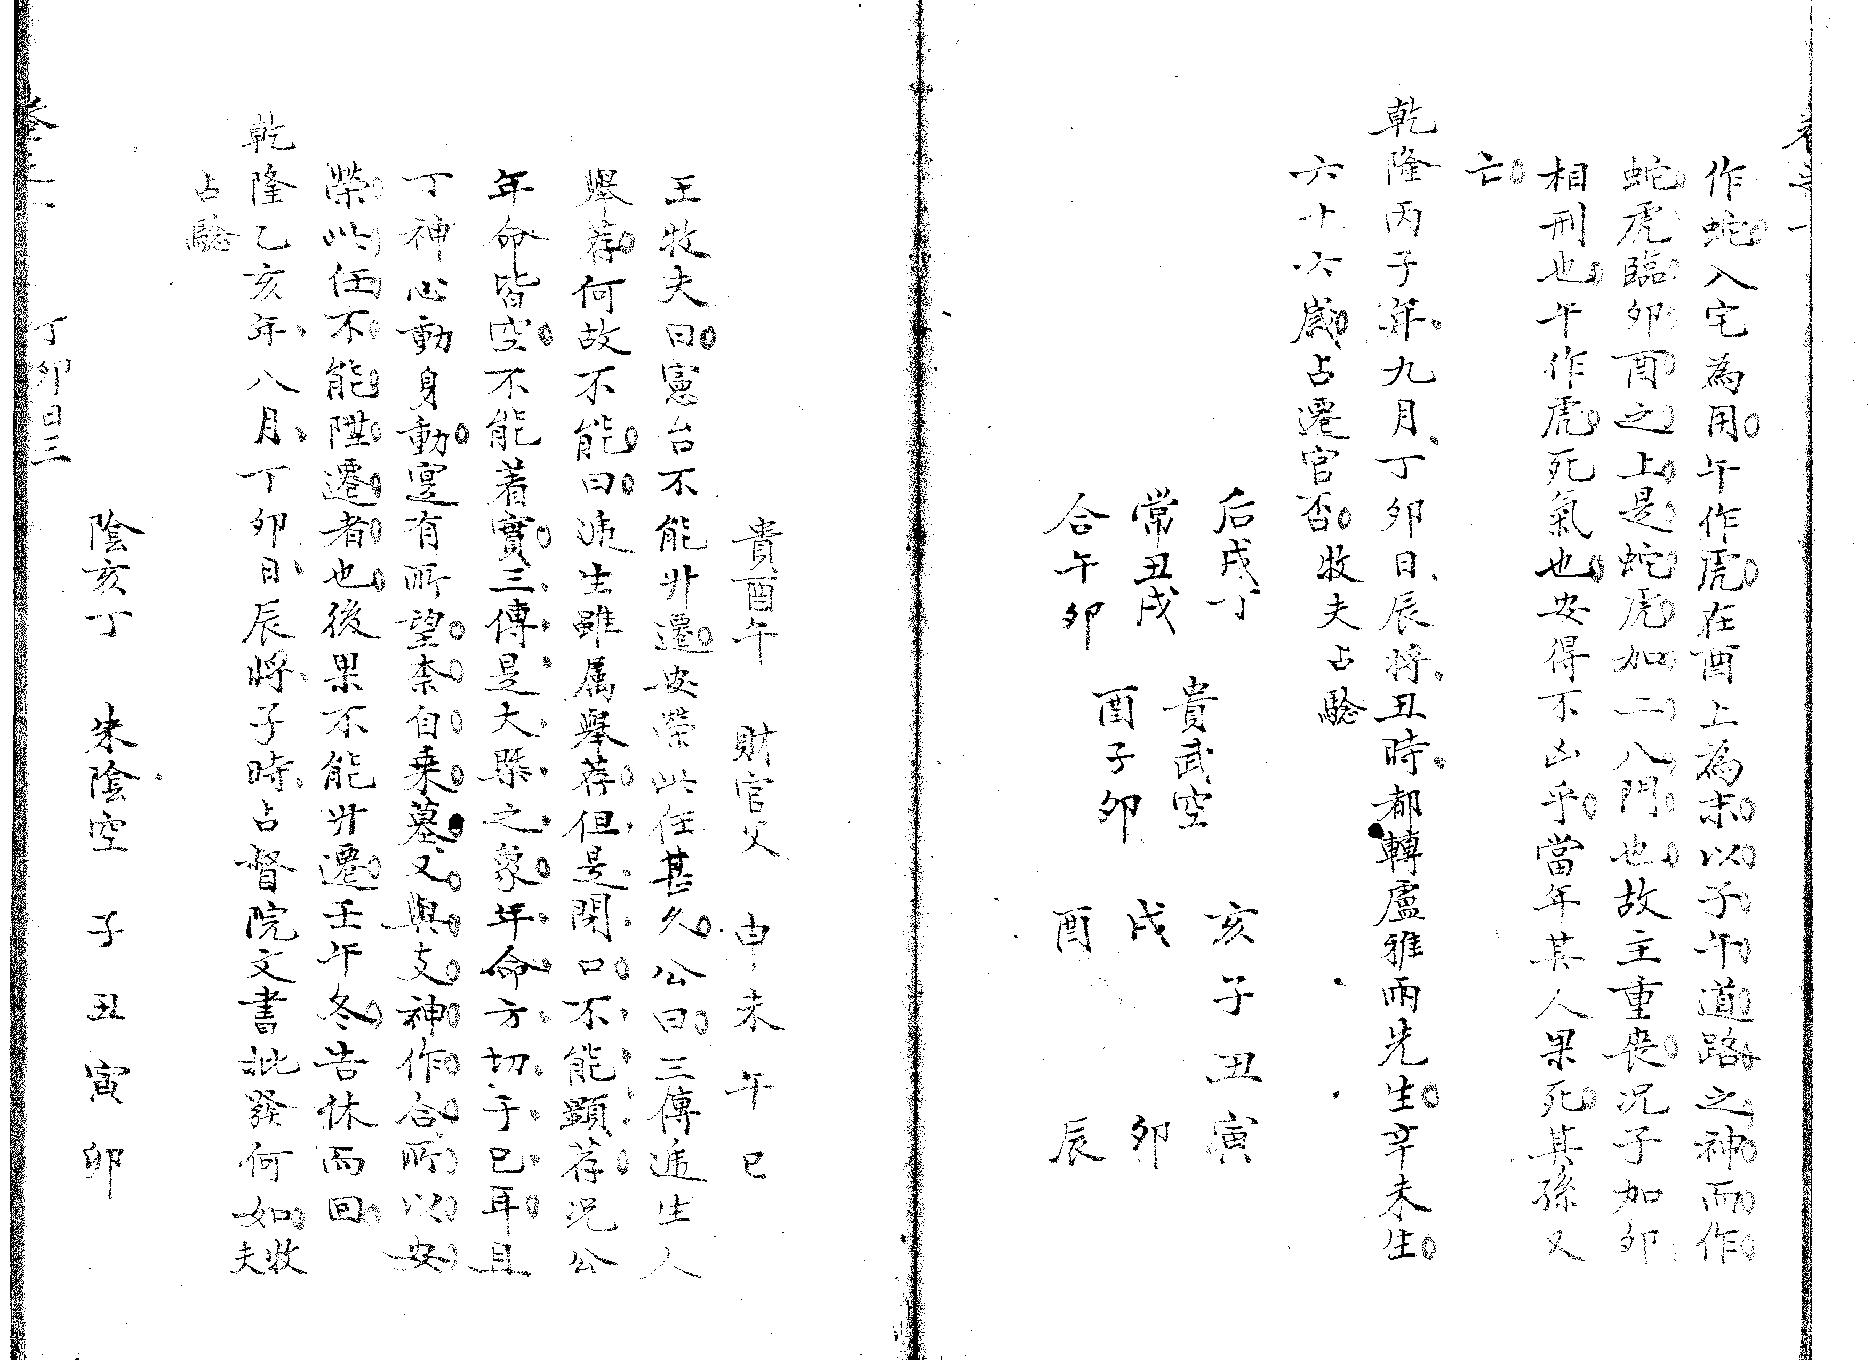 作蛇入宅為用午作虎在酉上為末以子午道路之神而作
蛇虎臨卯酉之上是蛇虎加二八門也故主重喪况子加卯
相刑也午作虎死氣也安得不凶乎當年其人果死其孫又
亡
乾隆丙子年九月丁卯日辰將丑時都轉盧雅雨先生辛未生
六十六歲占遷官否牧夫占驗
后戌丁 貴武空 亥子丑寅
常丑戌 戌 卯
合午卯 酉子卯 酉 辰
酉
貴酉午 財官父 申未午巳
王牧夫曰憲台不能升遷安榮此任甚久公曰三傳遞生人
舉荐何故不能曰遞生雖属舉荐但是閉口不能顯荐况公
年命皆空不能着實三傳是大縣之象年命方切于己耳且
丁神心動身動寔有所望柰自乗墓又與支神作合所以安
榮此任不能陞遷者也後果不能升遷壬午冬告休而回
乾隆乙亥年八月丁卯日辰將子時占督院文書批發何如牧夫
占驗
陰亥丁 朱陰空 子丑寅卯
卷三
丁卯日三